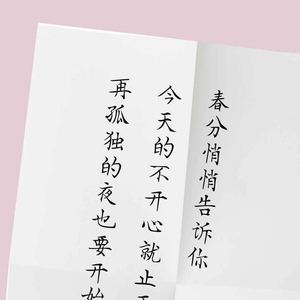 春分悄悄告诉你
今天的不开心就止
再孤独的夜也要开始